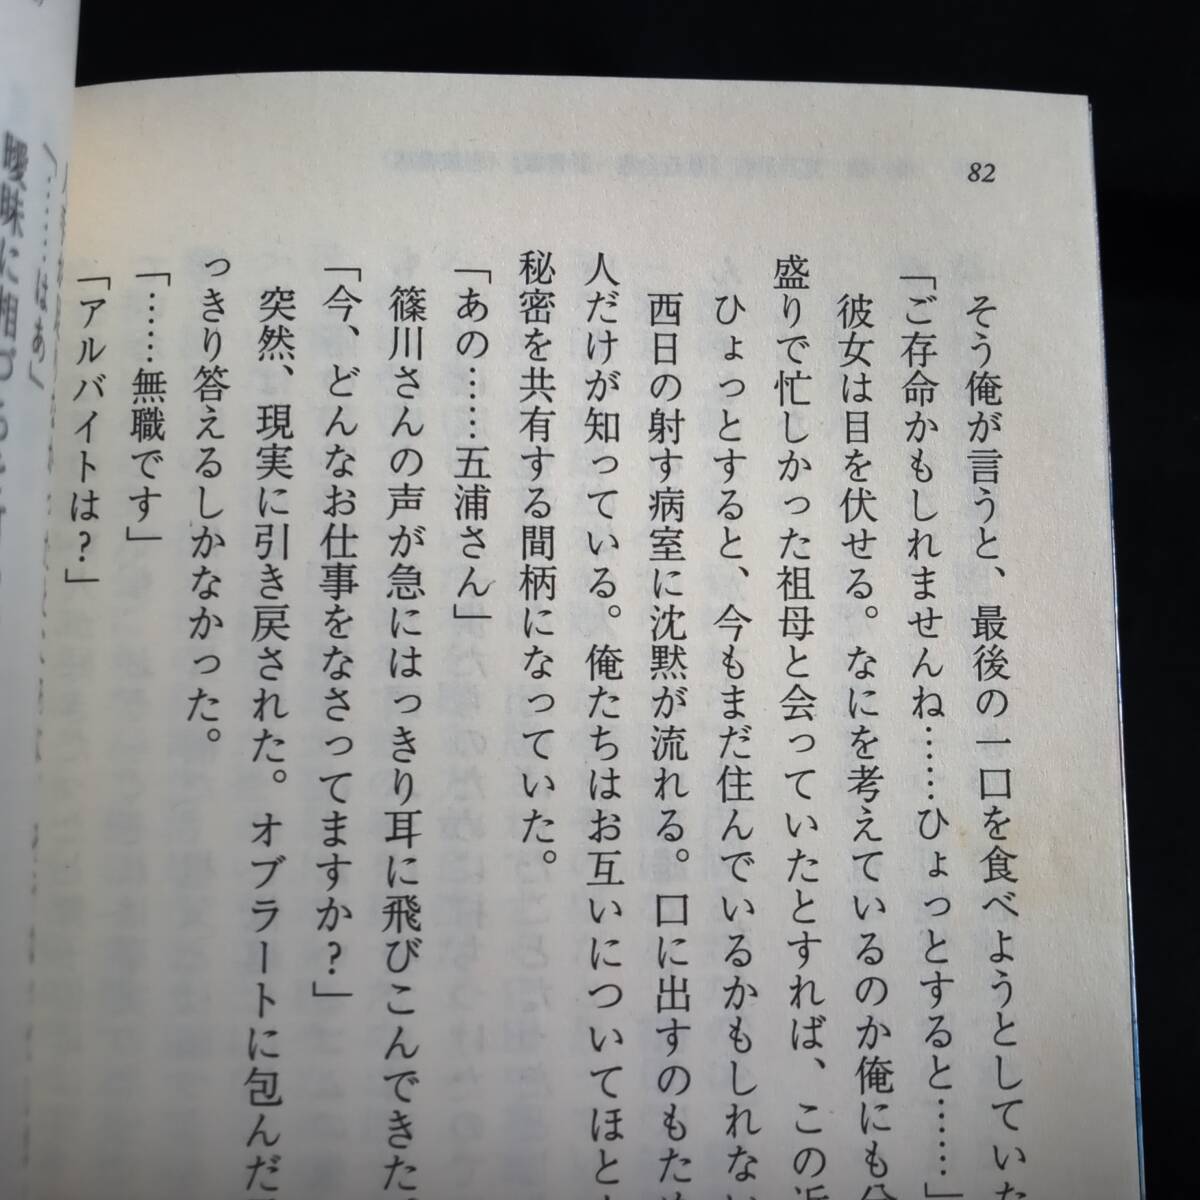 82
そう俺が言うと、最後の一口を食べようとしていた
「ご存命かもしれませんね……ひょっとすると……」
彼女は目を伏せる。なにを考えているのか俺にも分
盛りで忙しかった祖母と会っていたとすれば、この近
ひょっとすると、今もまだ住んでいるかもしれない
西日の射す病室に沈黙が流れる。口に出すのもため
人だけが知っている。俺たちはお互いについてほと
秘密を共有する間柄になっていた。
「あの……五浦さん」
篠川さんの声が急にはっきり耳に飛びこんできた。
「今、どんなお仕事をなさってますか?」
突然、現実に引き戻された。オブラートに包んだ
っきり答えるしかなかった。
「……無職です」
「アルバイトは?」
「……はあ」
曖昧に相づち